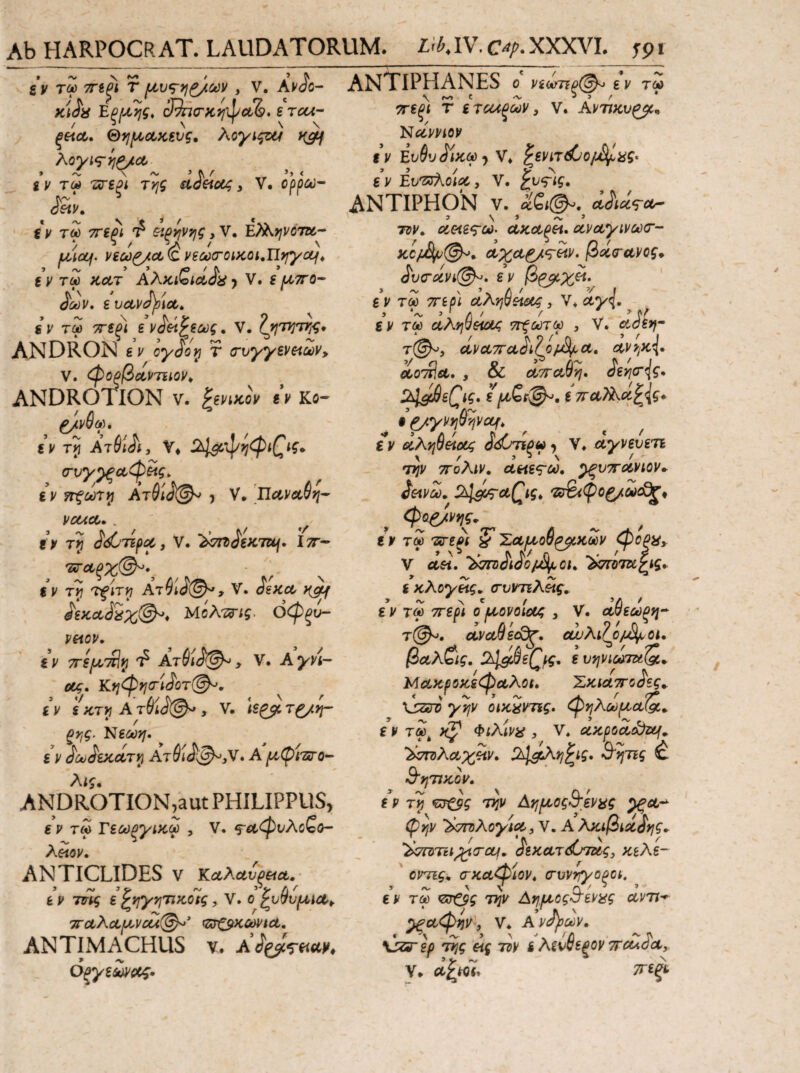 Ab HARPOCRAT. LAUDATORUM. Lib. IV. Cap. XXXVI. 591
ἐν τῷ περὶ τ μυστηρίων, v. Ἀνδο-
κίδȣ Ἑρμῆς. ἐπισκήψαθ. ἑται-
ρεία. Θημακευς. λογισταὶ καὶ
λογιστήρια
ἐν τῷ περὶ τῆς ἐνδείας, v. ὀρρω-
δεῖν.
ἐν τῷ περὶ τ εἰρήνης, v. Ἑλληνοτα-
μίαι. νεώρια & νεώσοικοι. Πηγαί.
ἐν τῷ κατ Ἀλκιβιάδȣ, v. ἐμπο-
δών. ἐυανδρία.
ἐν τῷ περὶ ἐνδείξεως. v. ζητητής.
ANDRON ἐν ὀγδόῃ τ συγγενειῶν,
v. φορβάντειον.
ANDROTION v. ξενικὸν ἐν Κο-
ρίνθῳ.
ἐν τῇ Ἀτθίδι, v. Διαψήφισις.
συγγραφεῖς.
ἐν πρώτῃ Ἀτθίδος, v. Παναθή-
ναια.
ἐν τῇ δευτέρα, v. ἀποδέκται. Ἵπ-
παρχος.
ἐν τῇ τρίτῃ Ἀτθίδος, v. δέκα καὶ
δεκαδȣχος. Μόλπις. Ὀφρύ-
νειον.
ἐν πέμπτῃ τ Ἀτθίδος, v. Ἀγυι-
ας. Κηφησίδοτος.
ἐν ἕκτῃ Ἀτθίδος, v. ἱερα τριή-
ρης. Νεώνη.
ἐν δωδεκάτῃ Ἀτθίδος, V. Ἀμφίπο-
λις.
ANDROTION, aut PHILIPPUS,
ἐν τῷ Γεωργικῷ, v. σταφυλοβο-
λεῖον.
ANTICLIDES v Καλαύρεια.
ἐν τοῖς ἐξηγητικοῖς, v. ὀξυθυμια,
παλαμναῖος προκώνια.
ANTIMACHUS v. Ἀδράστειαν.
Ὀργεῶνας.
ANTIPHANES ὁ νεώτερος ἐν τῷ
περὶ τ ἑταιρῶν, v. Ἀντικυρα.
Νάννιον
ἐν Εὐθυδίκῳ, v. ξενιτευομένȣς.
ἐν Εὐπλοίᾳ, v. ξυστίς.
ANTIPHON v. ἄβιος. ἀδιάστα-
τον. ἀειεστώ. ἀκαρεῖ. ἀναγινωσ-
κόμενος. ἀχαριστεῖν. βάσανος.
δυσάνιος. ἐν βραχεῖ.
ἐν τῷ περὶ ἀληθείας, v. ἄγει.
ἐν τῷ ἀληθείας πρώτῳ, v. ἀδέη-
τος, ἀναπαδιζόμενα. ἀνήκει.
ἄοπτα., & ἀπαθῆ. δεήσεις.
Διάθεσις. ἔμβιος. ἐπαλλάξεις.
ὀριγνηθῆναι.
ἐν ἀληθείας δευτέρῳ, v. ἁγνεύετε
τὴν πόλιν. ἀειεστώ. γρυπάνιον.
δεινῶ. Διάστασις. περιφοριῶσθαι,
Φορίνης.
ἐν τῷ περὶ τȣ Σαμοθρακῶν φόρȣ,
v ἀεί. ἀποδιδόμενοι. ἀπόταξις.
ἐκλογεῖς. συντελεῖς.
ἐν τῷ περὶ ὁμονοίας, v. ἀθεώρη-
τος. ἀναθέσθαι. αὐλιζόμενοι.
βαλβίς. Διάθεσις. εὐηνιώτατα.
Μακροκέφαλοι. Σκιάποδες.
Ὑπὸ γῆν οἰκȣντες. φηλώματα.
ἐν τῷ κατὰ Φιλίνȣ, v. ἀκροᾶσθαι.
ἀπολαχεῖν. Διάληξις. θῆτες &
θητικόν.
ἐν τῇ πρὸς τὴν Δημοσθένȣς γρα-
φὴν ἀπολογίᾳ, v. Ἀλκιβιάδης.
ἀποτειχίσαι. δεκατευτὰς, κελέ-
οντες. σκαφίον. συνήγοροι.
ἐν τῷ πρὸς τὴν Δημοσθένȣς ἀντι-
γραφὴν, v. Ἀνδρῶν.
ὑπὲρ τῆς εἰς τὸν ἐλεύθερον παῖδα,
v. ἀξιοῖ. περὶ